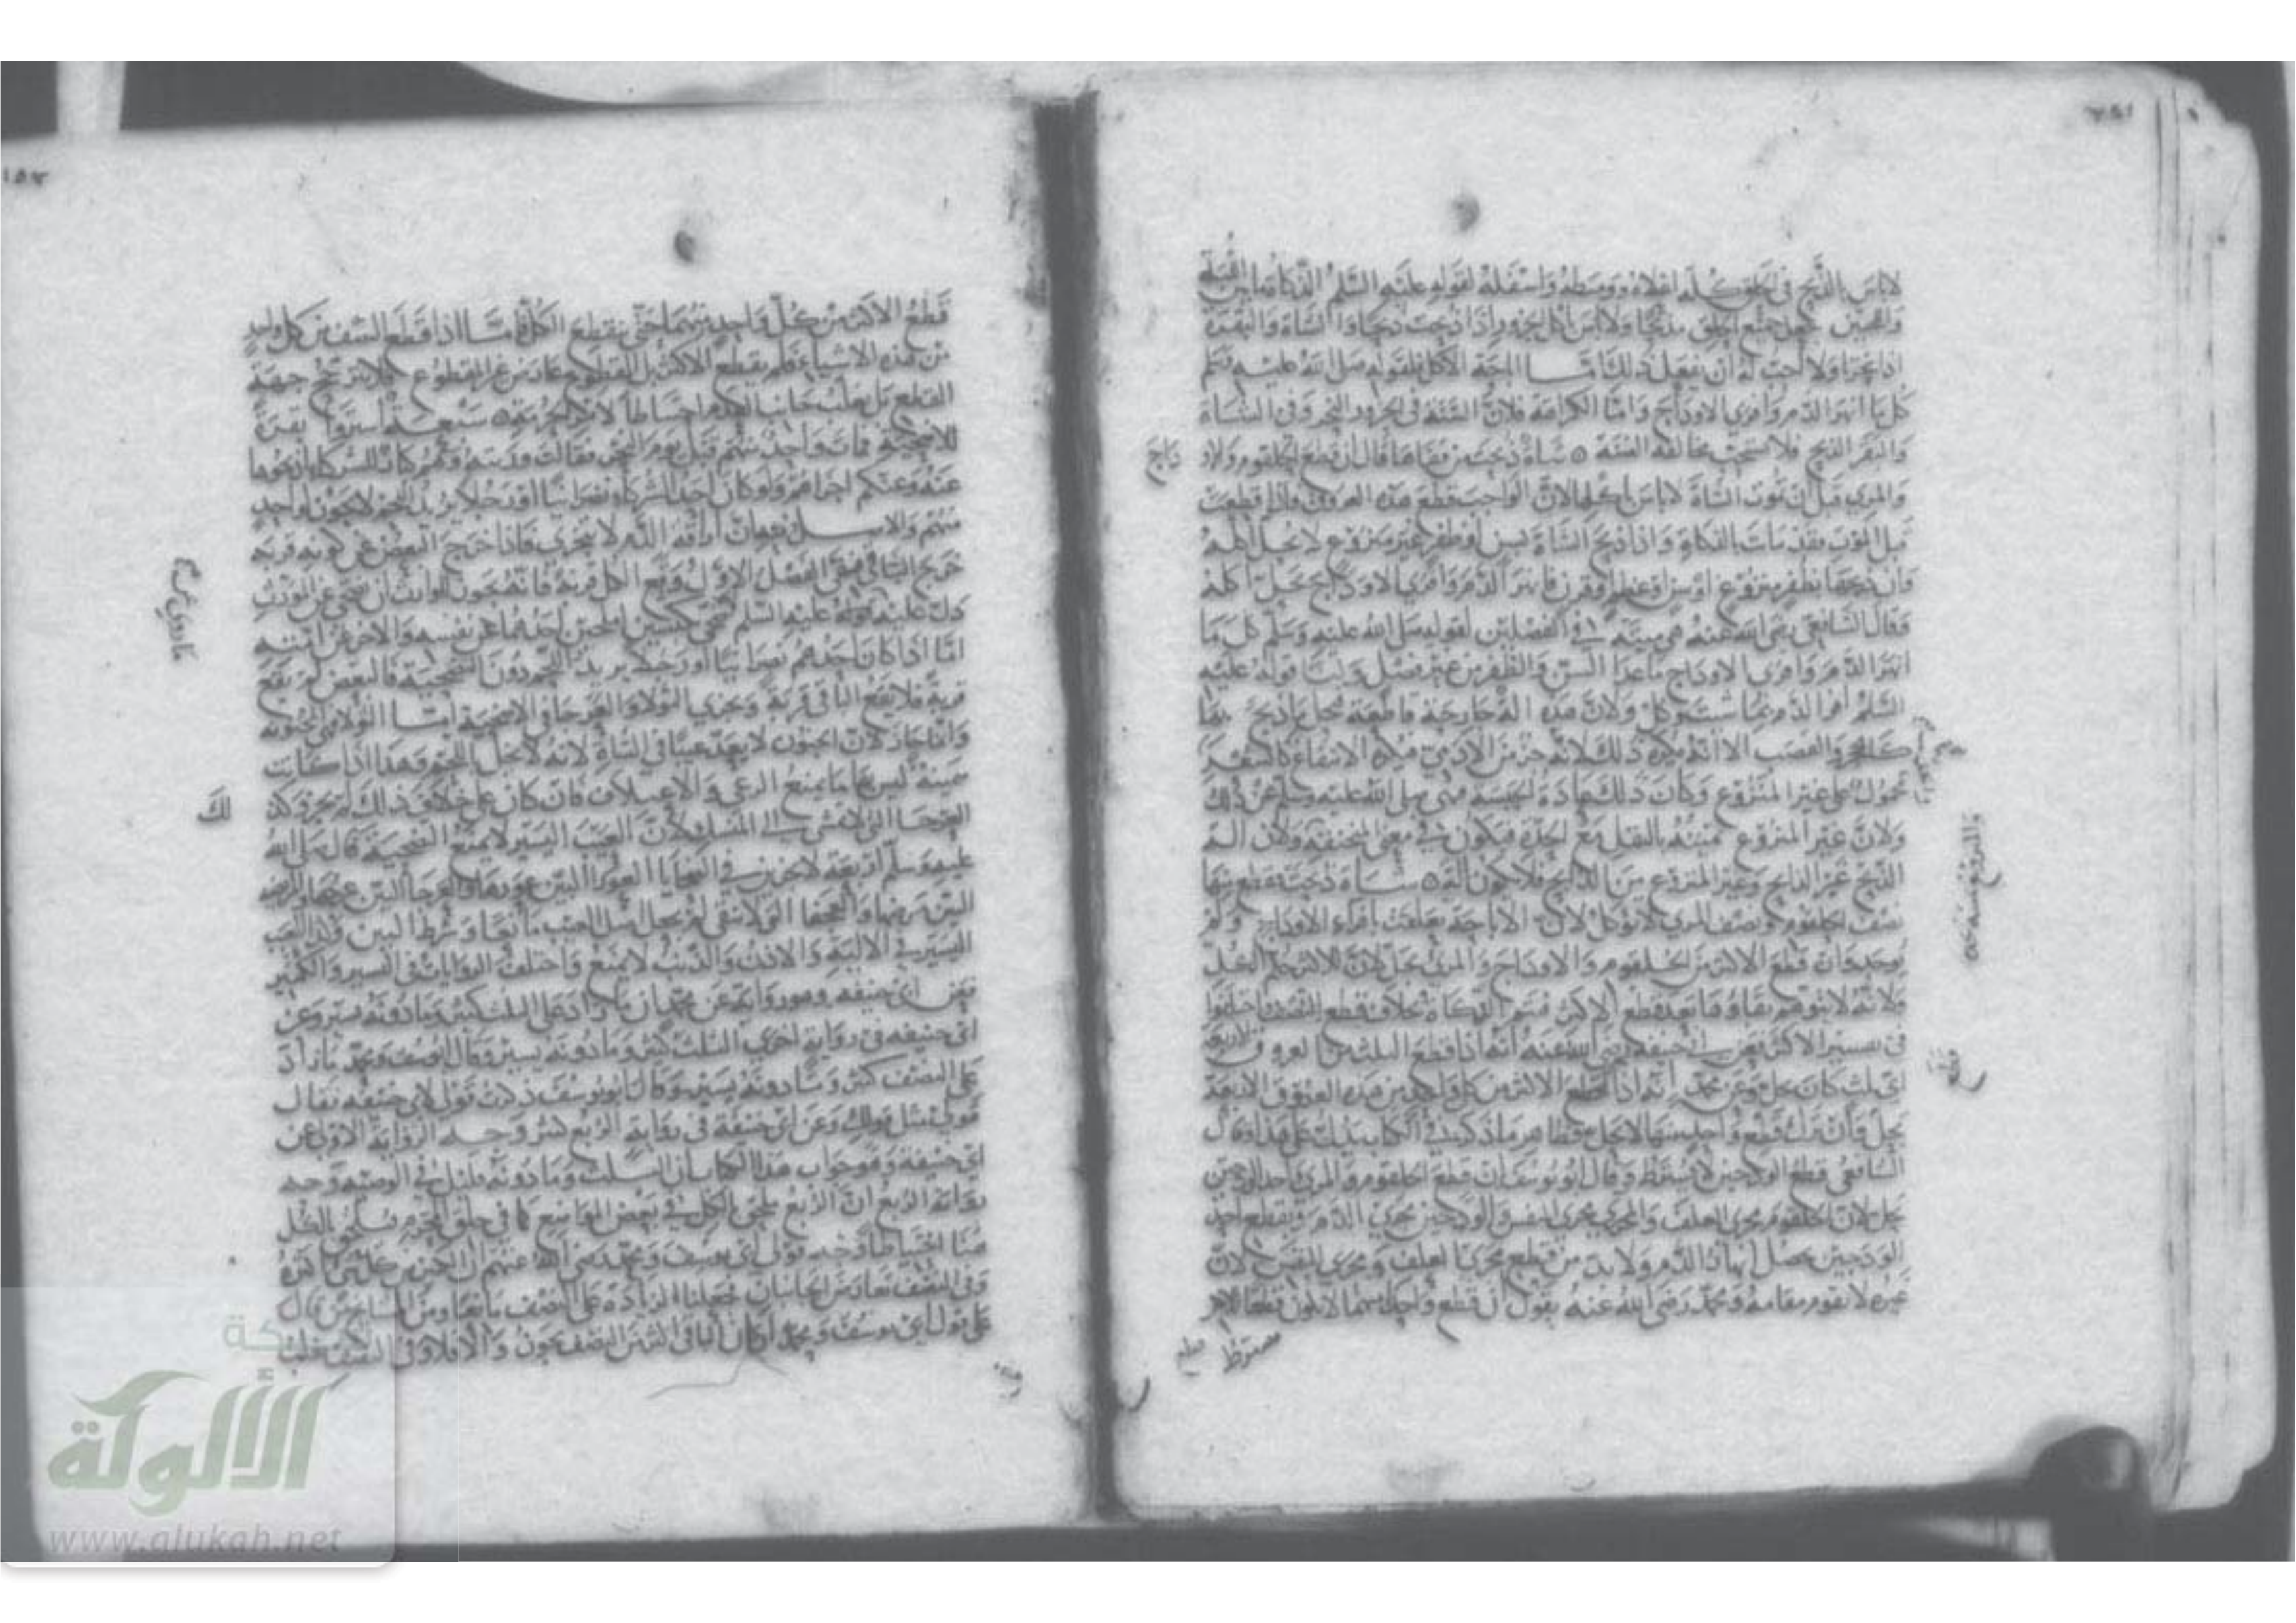 لا باس بالذبح في الحلق كله اعلاه ووسطه واسفله لقوله عليه السلم الذكاة ما بين اللبة
واللحيين جعل جميع الحلق مذبحا ولا باس باكل الجزور اذا ذبحت ذبحا واذا الشاة والبقرة
اذا نحرتا ولا احب له ان يفعل ذلك اما اباحة الاكل فلقوله صلى الله عليه وسلم
كل ما انهر الدم وافرى الاوداج واما الكراهة فلان السنة في الجزور النحر وفي الشاة
والبقر الذبح فلا يستحب مخالفة السنة ه شاة ذبحت من قفاها قال ان قطع الحلقوم والاو
داج
والمري قبل ان تموت الشاة لا باس باكلها لان الواجب قطع هذه العروق واذا قطعت
قبل الموت فقد تمت الذكاة واذا ذبح الشاة بسن او ظفر غير منزوع لا يحل اكله
وان ذبحها بظفر منزوع او سن او عظم او قرن فانهر الدم وافرى الاوداج حل اكله
وقال الشافعي رضي الله عنه هي ميتة في الفصلين لقوله صلى الله عليه وسلم كل ما
انهر الدم وافرى الاوداج ما عدا السن والظفر من غير فصل ولنا قوله عليه
السلم انهر الدم بما شئت وكل ولان هذه الة جارحة قاطعة فحل ما ذبح بها
كالحجر والقصب الا انه يكره ذلك لانه جزء من الادمي يكره الانتفاع به كالشعر
محمول على غير المنزوع وكان ذلك عادة الحبشة فنهى صلى الله عليه وسلم عن ذلك
ولان غير المنزوع يميته بالثقل مع الحدة فيكون في معنى المنخنقة ولان الة
الذبح غير الذابح وغير المنزوع من الذابح فلا يكون الة ه شاة ذبحت فقطع منها
نصف الحلقوم ونصف المري لا توكل لان الاباحة تعلقت بافراء الاوداج ولم
يوجد فان قطع الاكثر من الحلقوم والاوداج والمري يحل لان للاكثر حكم الكل
ولانه لا يتوهم بقاؤه بعد قطع الاكثر فتتم الذكاة بخلاف قطع النصف واختلفوا
في تفسير الاكثر فعن ابي حنيفة رضي الله عنه انه اذا قطع الثلث من العروق الاربعة
اي ثلث كان يحل وعن محمد انه اذا قطع الاكثر من كل واحد من هذه العروق الاربعة
يحل وان ترك قطع واحد منها لا يحل وظاهر ما ذكر في الكتاب يدل على هذا وقال
الشافعي قطع الودجين لا يشترط وقال ابو يوسف ان قطع الحلقوم والمري واحد الودجين
يحل لان الحلقوم مجرى العلف والمري مجرى النفس والودجين مجرى الدم وبقطع احد
الودجين يحصل انهار الدم ولا بد من قطع مجرى العلف ومجرى النفس لان
غيره لا يقوم مقامه ومحمد رضي الله عنه يقول ان قطع واحد منهما لا يكون قطعا للاخر
قطع الاكثر من كل واحد منهما حتى ينقطع الكل فاما اذا قطع النصف من كل واحد
من هذه الاشياء فلم يقطع الاكثر بل المقطوع عادل غير المقطوع فلا تترجح جهة
القطع بل يغلب جانب الحرام احتياطا لامر الحرمة ه سبعة اشتروا بقرة
للاضحية فمات واحد منهم قبل يوم النحر فقالت ورثته وهم كبار للشركاء اذبحوها
عنه وعنكم اجزاهم ولو كان احد الشركاء نصرانيا او رجلا يريد اللحم لا يجوز لواحد
منهم والاصل فيه ان اراقة الدم لا تتجزى فاذا خرج البعض عن كونه قربة
خرج الباقي ففي الفصل الاول وقع الكل قربة فانه يجوز للوارث ان يضحي عن المورث
دل عليه تضحية عليه السلم بكبشين املحين احدهما عن نفسه والاخر عن امته
اما اذا كان احدهم نصرانيا او رجلا يريد اللحم دون التضحية فالبعض لم يقع
قربة فلا يقع الباقي قربة وتجزي الثولاء والعرجاء في الاضحية اما الثولاء المجنونة
وانما جاز لان الجنون لا يعد عيبا في الشاة لانه لا يخل باللحم وهذا اذا كانت
سمينة ليس بها ما يمنع الرعي والاعتلاف فان كان على خلاف ذلك لم يجز وكذ
لك
العرجاء التي لا تمشي الى المنسك لان العيب اليسير لا يمنع التضحية قال صلى الله
عليه وسلم اربعة لا تجزي في الضحايا العوراء البين عورها والعرجاء البين عرجها والمريضة
البين مرضها والعجفاء التي لا تنقي لم يجعل اصل العيب مانعا وشرط البين وكذا العيب
اليسير في الالية والاذن والذنب لا يمنع واختلفت الروايات في اليسير والكثير
فعن ابي حنيفة وهو رواية عن محمد ان ما زاد على الثلث كثير وما دونه يسير وعن
ابي حنيفة في رواية اخرى الثلث كثير وما دونه يسير وقال ابو يوسف ومحمد ما زاد
على النصف كثير وما دونه يسير وقال ابو يوسف ذكرت قولي لابي حنيفة فقال
قولي مثل قولك وعن ابي حنيفة في رواية الربع كثير وجه الرواية الاولى عن
ابي حنيفة وهو جواب هذا الكتاب ان الثلث وما دونه قليل في الوصية وجه
رواية الربع ان الربع ملحق بالكل في بعض المواضع كما في حلق المحرم فيلحق بالكل
هنا احتياطا وجه قول ابي يوسف ومحمد رضي الله عنهم
وفي النصف تعارض الجانبان فجعلنا الزيادة على النصف مانعا ومن المشايخ من قال
على قول ابي يوسف ومحمد ان كان الباقي النصف يجوز